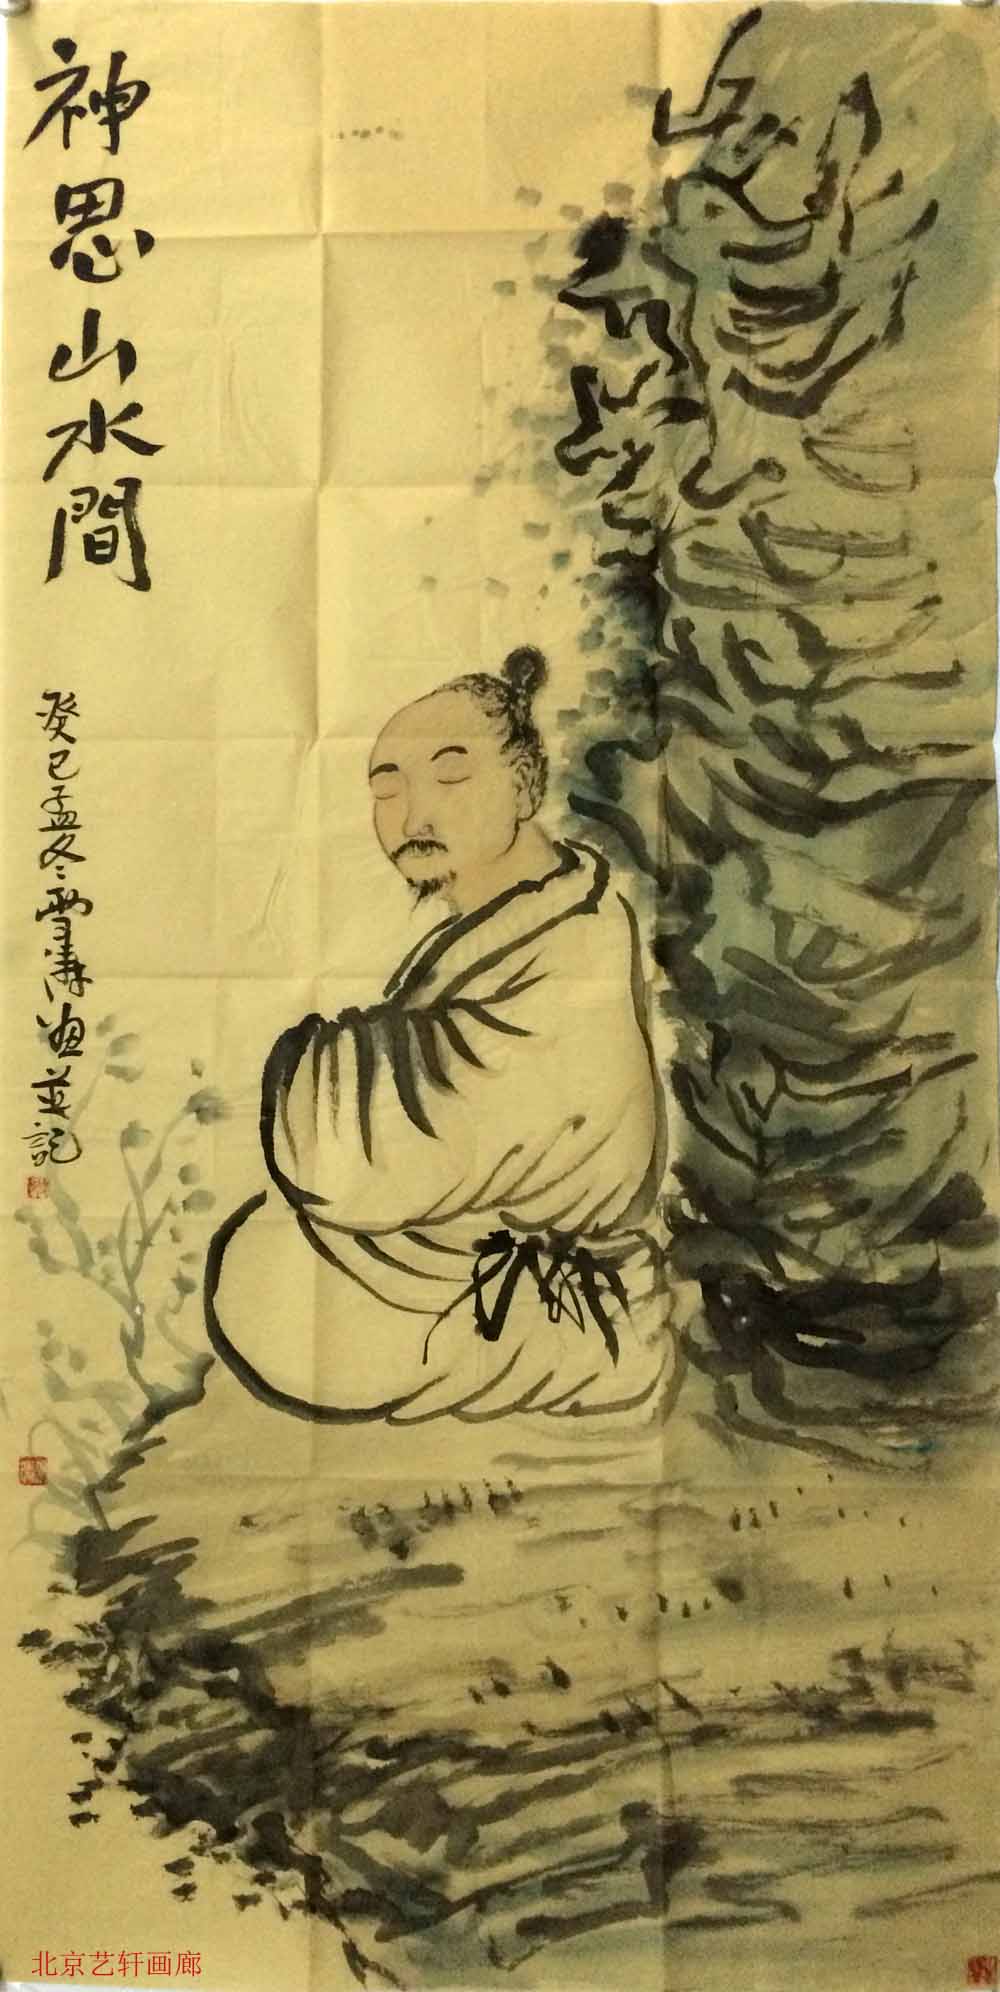 神思山水間
癸巳孟冬雪濤画並記
北京艺轩画廊